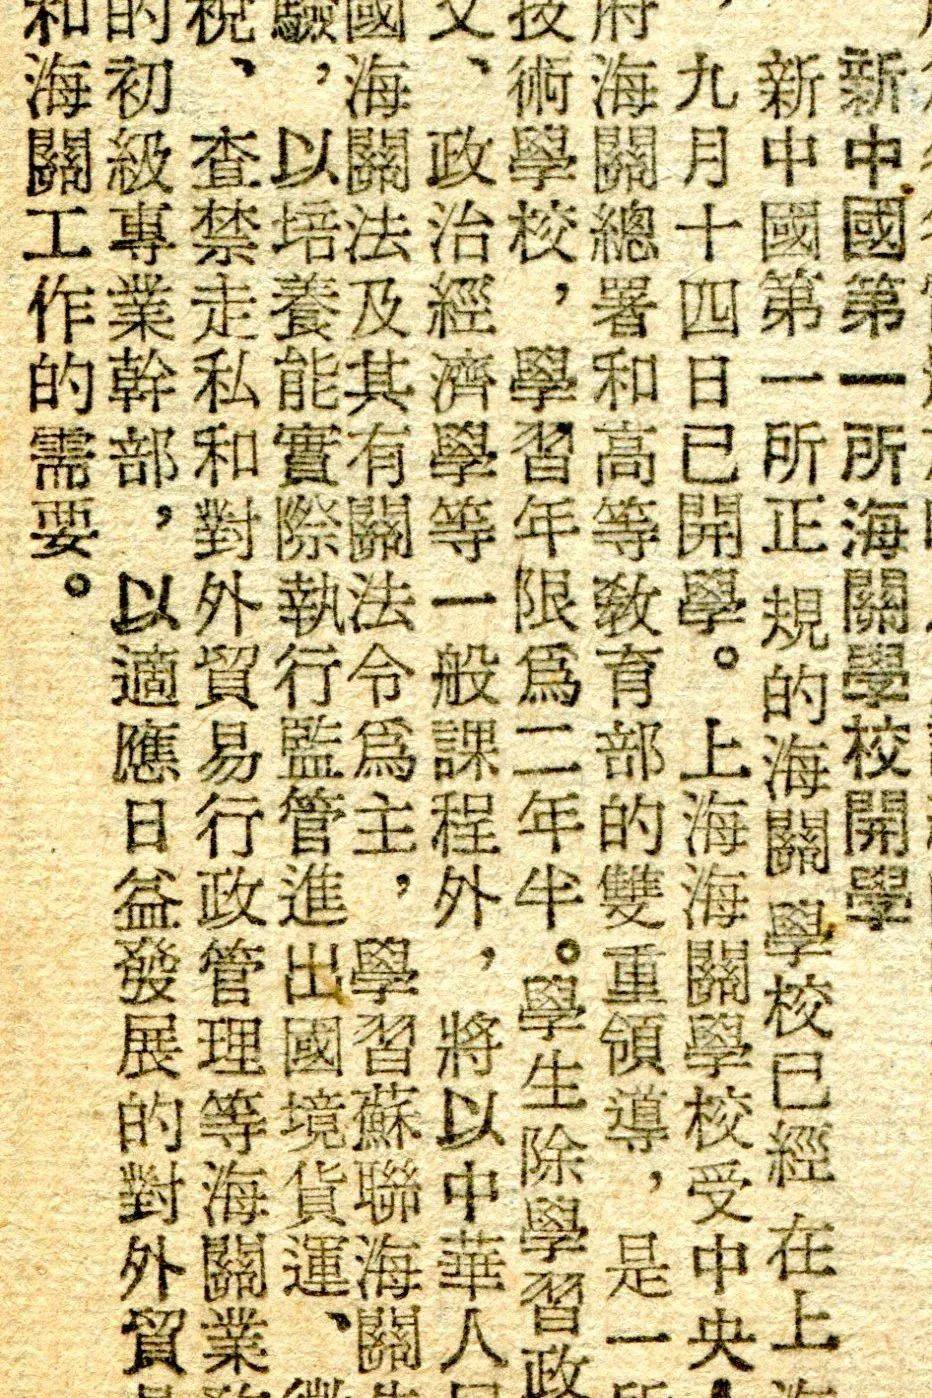 新中國第一所海關學校開學
新中國第一所正規的海關學校已經在上
九月十四日已開學。上海海關學校受中央
海關總署和高等教育部的雙重領導，是一
技術學校，學習年限爲二年半。學生除學習政
文、政治經濟學等一般課程外，將以中華人
國海關法及其有關法令爲主，學習蘇聯海關
驗，以培養能實際執行監管進出國境貨運、
稅、查禁走私和對外貿易行政管理等海關業
的初級專業幹部，以適應日益發展的對外貿
和海關工作的需要。